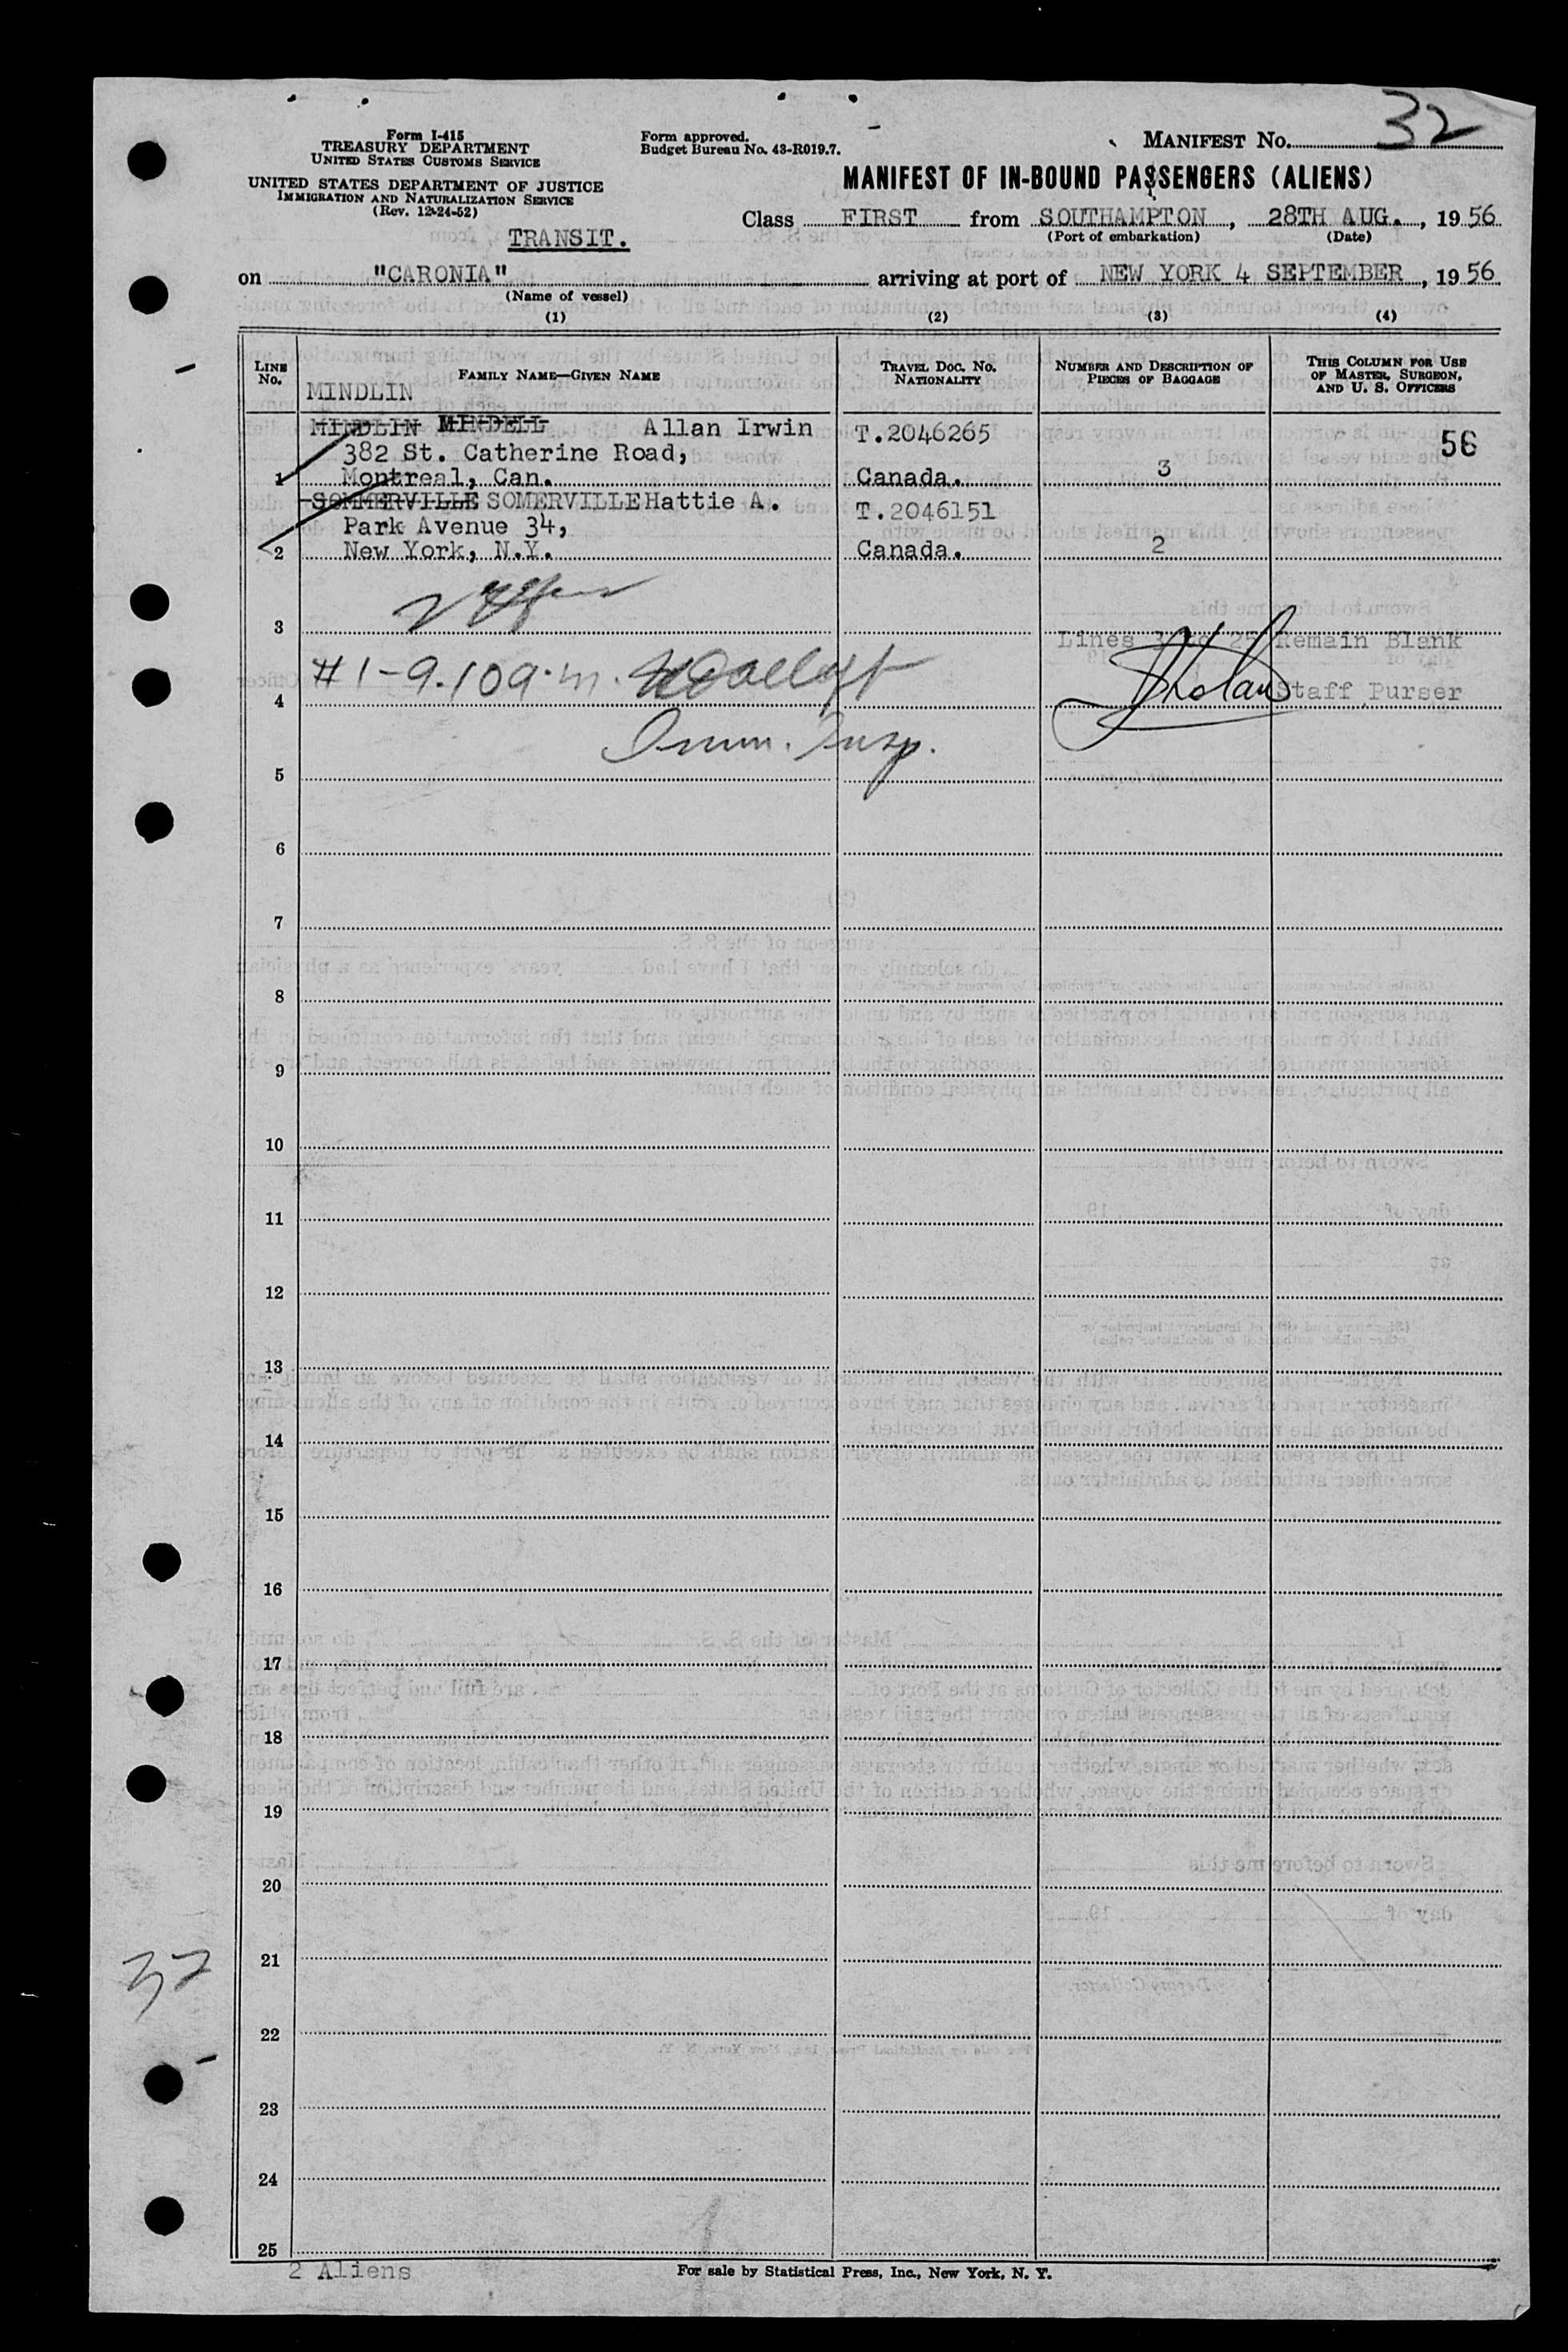 32
Form I-415
TREASURY DEPARTMENT
UNITED STATES CUSTOMS SERVICE
UNITED STATES DEPARTMENT OF JUSTICE
IMMIGRATION AND NATURALIZATION SERVICE
(Rev. 12-24-52)
TRANSIT.
Form approved.
Budget Bureau No. 43-R019.7.
MANIFEST No.
MANIFEST OF IN-BOUND PASSENGERS (ALIENS)
Class FIRST from SOUTHAMPTON, 28TH AUG., 1956
(Port of embarkation) (Date)
on "CARONIA" arriving at port of NEW YORK 4 SEPTEMBER, 1956
(Name of vessel)
(1) (2) (3) (4)
LINE No. FAMILY NAME—GIVEN NAME TRAVEL DOC. NO. NATIONALITY NUMBER AND DESCRIPTION OF PIECES OF BAGGAGE THIS COLUMN FOR USE OF MASTER, SURGEON, AND U. S. OFFICERS
MINDLIN
MINDLIN MINDELL Allan Irwin T.2046265 56
382 St. Catherine Road,
1 Montreal, Can. Canada. 3
SOMMERVILLE SOMERVILLE Hattie A. T.2046151
Park Avenue 34,
2 New York, N.Y. Canada. 2
3 Lines 3 to 25 Remain Blank
#1-9.10a.m.
4 Staff Purser
Imm. Insp.
5
6
7
8
9
10
11
12
13
14
15
16
17
18
19
20
21
37
22
23
24
25
2 Aliens
For sale by Statistical Press, Inc., New York, N. Y.